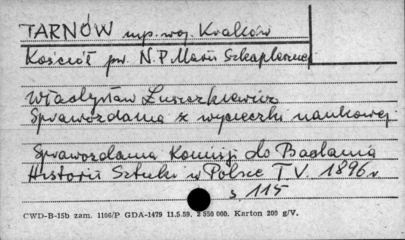 TARNÓW mp. woj. Kraków
Kościół pw. N.P. Marii Szkaplerznej
Władysław Łuszczkiewicz
Sprawozdanie z wycieczki naukowej
Sprawozdania Komisji do Badania
Historii Sztuki w Polsce T V. 1896 r.
s. 115
CWD-B-15b zam. 1106/P GDA-1479 11.5.59. 2 550 000. Karton 200 g/V.